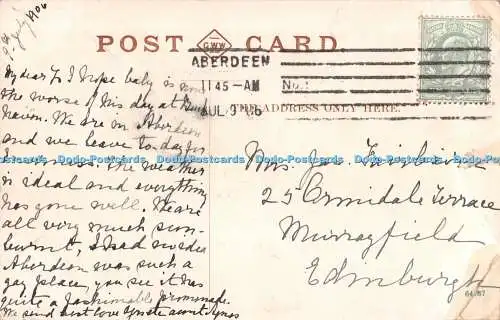 9th July 1906
POST CARD
GWW
ABERDEEN
11 45 - AM
No. 1
JUL 9 06
THE ADDRESS ONLY HERE.
My dear Jo I hope baby is
the worse of his day at
haven. We are in Aberdeen
and we leave to-day for
The weather
is ideal and everything
has gone well. We are
all very much sun-
burnt, I had no idea
Aberdeen was such a
gay place, you see it has
quite a fashionable promenade.
We send best love
Mrs. Jas.
25 Ormidale Terrace
Murrayfield
Edinburgh
64/87
Dodo-Postcards Dodo-Postcards Dodo-Postcards Dodo-Postcards Dodo-Postcards Dodo-Postcards